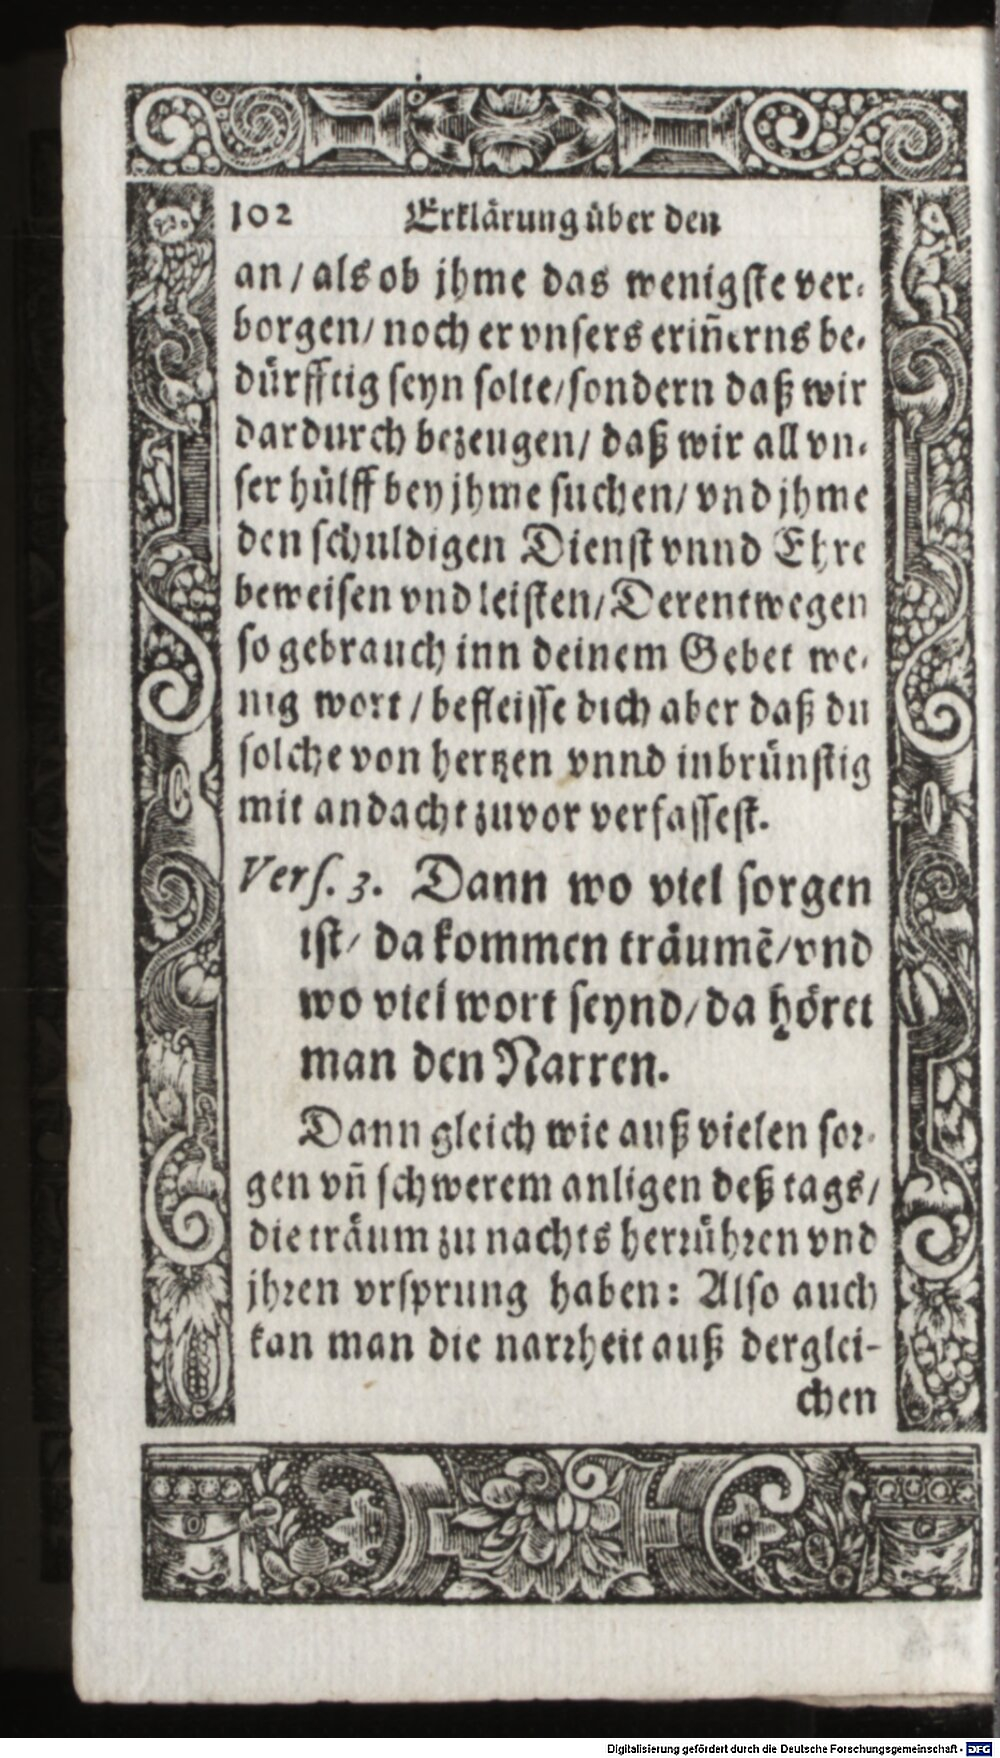 102 Erklärung über den
an / als ob jhme das wenigste ver-
borgen / noch er vnsers erin̄erns be-
dürfftig seyn solte / sondern daß wir
dardurch bezeugen / daß wir all vn-
ser hülff bey jhme suchen / vnd jhme
den schuldigen Dienst vnnd Ehre
beweisen vnd leisten / Derentwegen
so gebrauch inn deinem Gebet we-
nig wort / befleisse dich aber daß du
solche von hertzen vnnd inbrünstig
mit andacht zuvor verfassest.
Vers. 3. Dann wo viel sorgen
ist / da kommen träumē / vnd
wo viel wort seynd / da höret
man den Narren.
Dann gleich wie auß vielen sor-
gen vn̄ schwerem anligen deß tags /
die träum zu nachts herrühren vnd
jhren vrsprung haben: Also auch
kan man die narrheit auß derglei-
chen
Digitalisierung gefördert durch die Deutsche Forschungsgemeinschaft - DFG